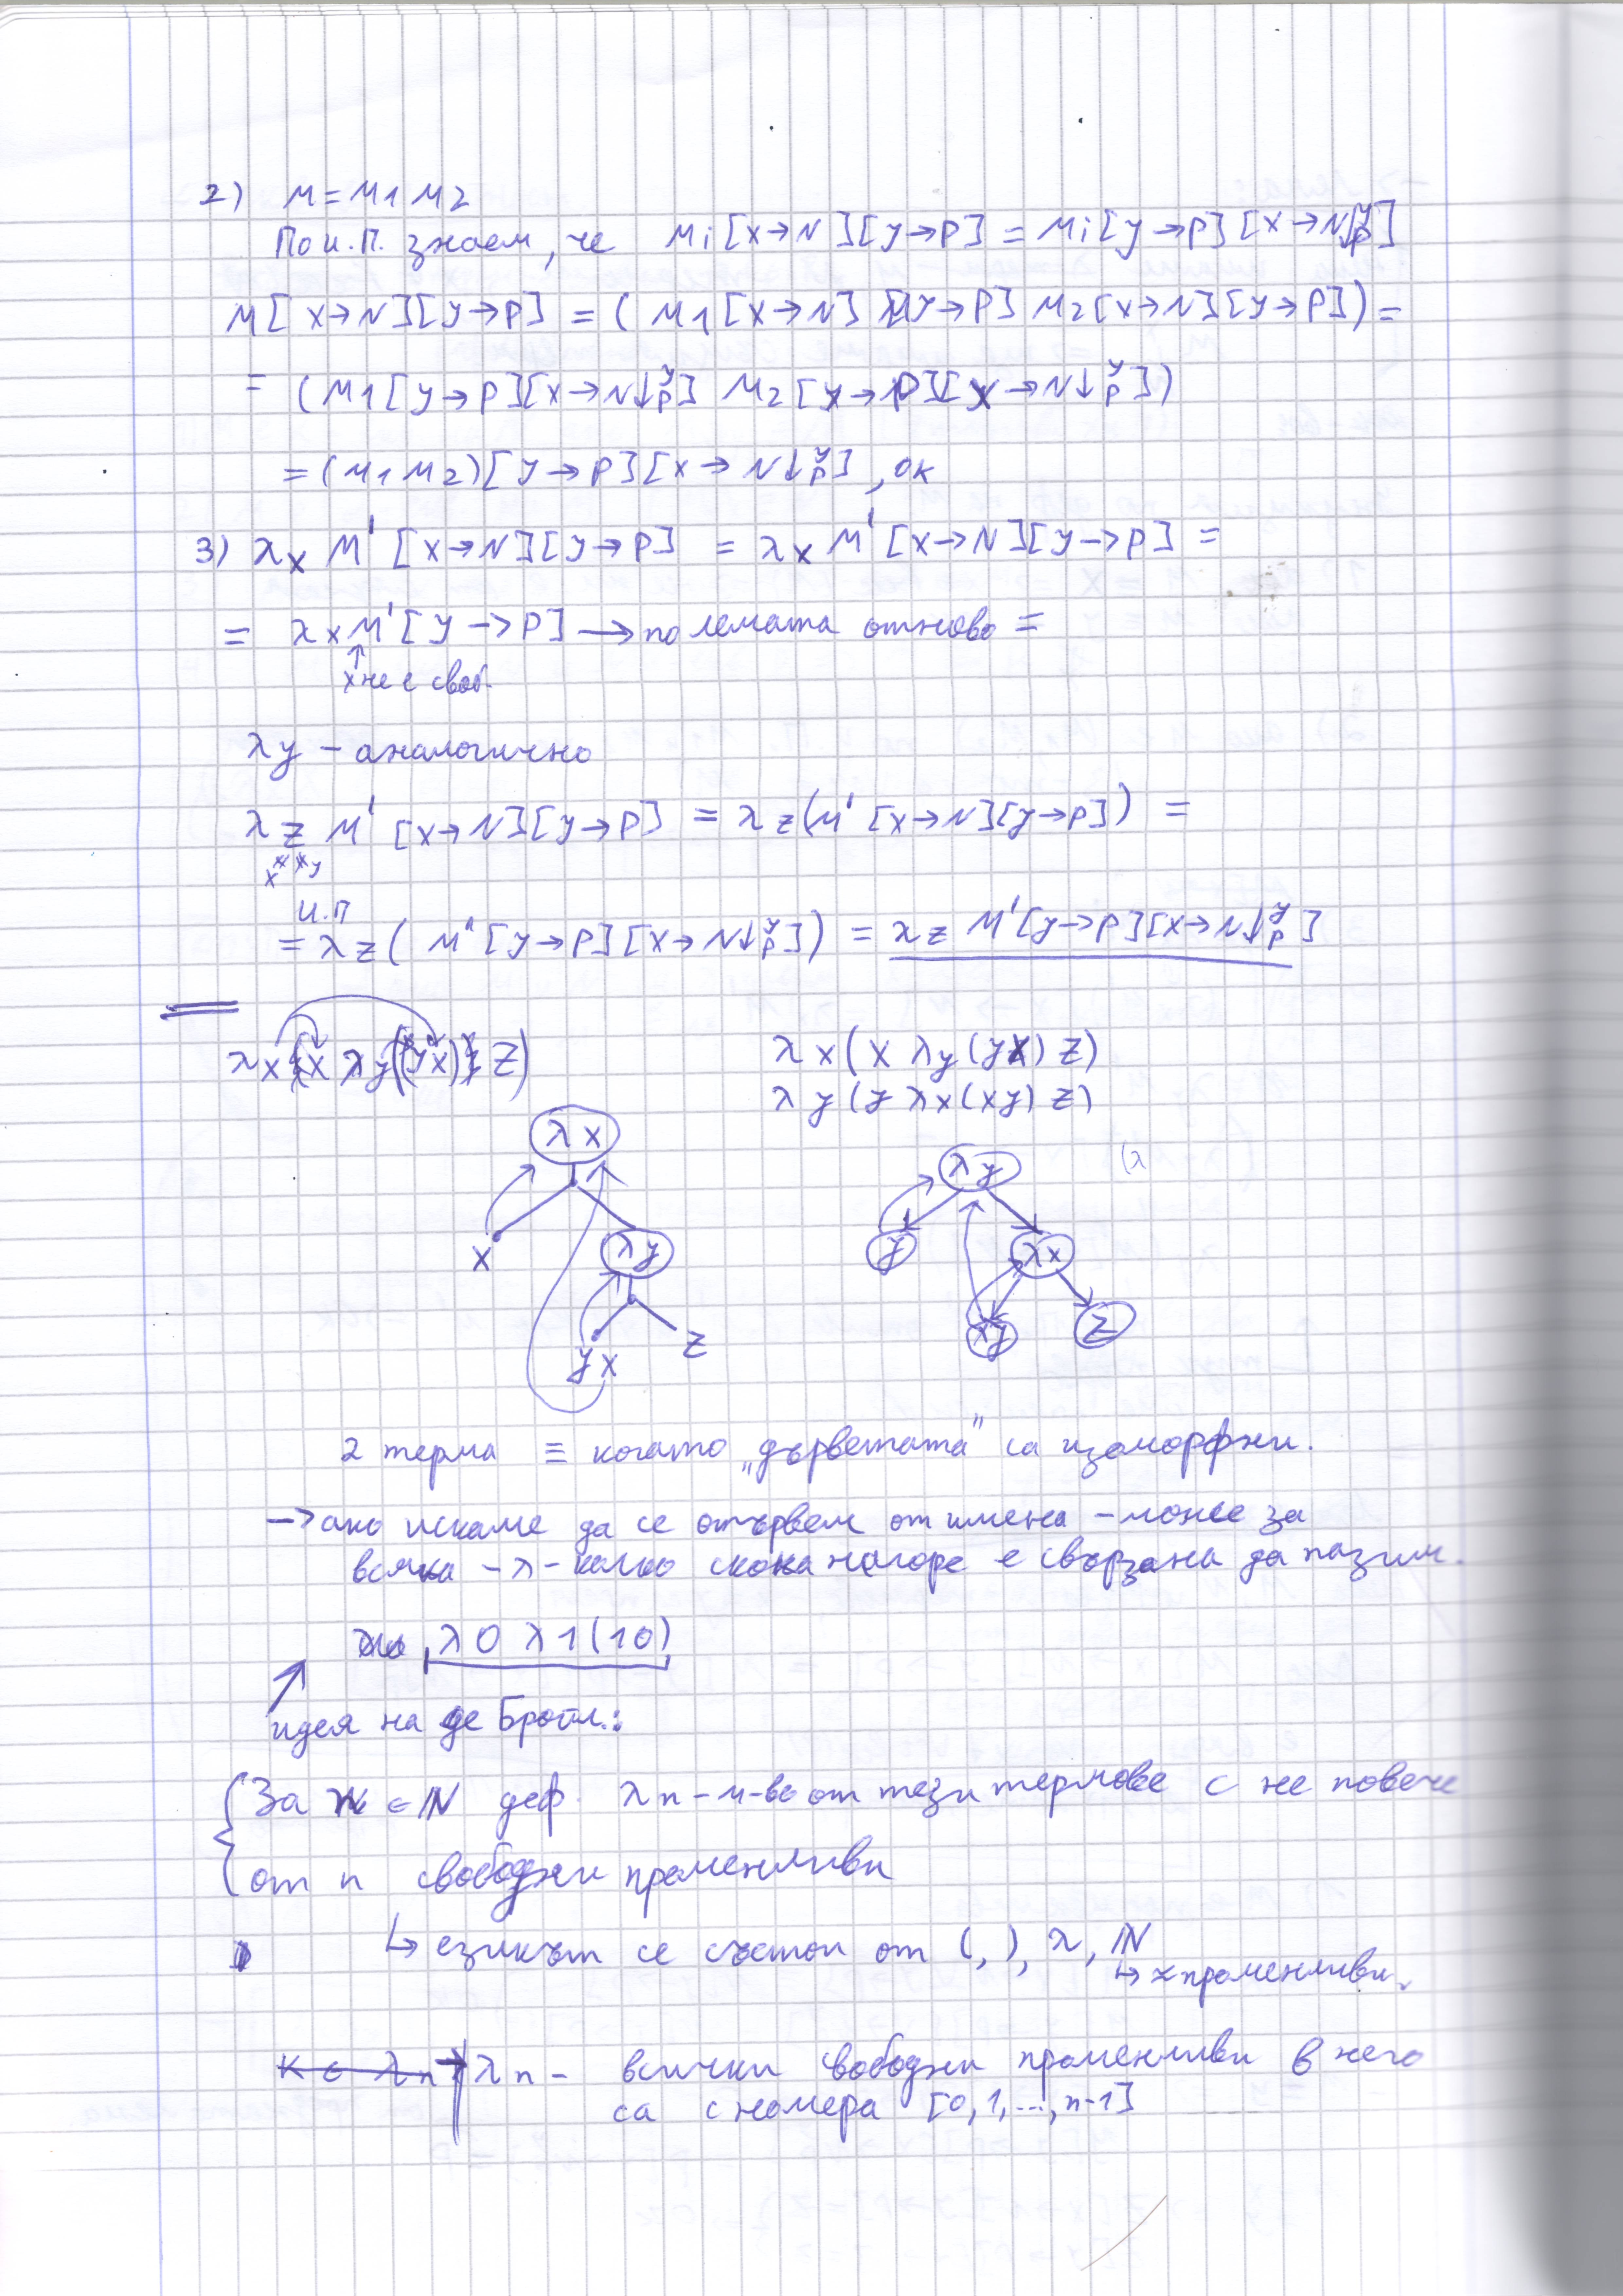 2) M = M1 M2
По И.П. знаем, че Mi[x→N][y→P] = Mi[y→P][x→N↓y/P]
M[x→N][y→P] = (M1[x→N][y→P] M2[x→N][y→P]) =
= (M1[y→P][x→N↓y/P] M2[y→P][x→N↓y/P])
= (M1 M2)[y→P][x→N↓y/P], ок
3) λx M'[x→N][y→P] = λx M'[x→N][y→P] =
= λx M'[y→P] → по лемата отново =
x не е своб.
λy – аналогично
λz M'[x→N][y→P] = λz(M'[x→N][y→P]) =
x y
И.П
= λz(M'[y→P][x→N↓y/P]) = λz M'[y→P][x→N↓y/P]
λx(x λy(yx) z)
λx(x λy(yx) z)
λy(y λx(xy) z)
λx
λy
(λ
x
λy
y
λx
yx
z
xy
z
2 терма ≡ когато „дърветата" са изоморфни.
→ ако искаме да се отървем от имена – може за
всяка – λ – колко скока нагоре е свързана да пазим.
λ0 λ1(10)
идея на де Бройн.:
За n ∈ ℕ деф. λn – м-во от тези термове с не повече
от n свободни променливи
↳ езикът се състои от (, ), λ, ℕ
↳ променливи.
K ∈ λn → λn – всички свободни променливи в него
са с номера [0, 1, ..., n-1]